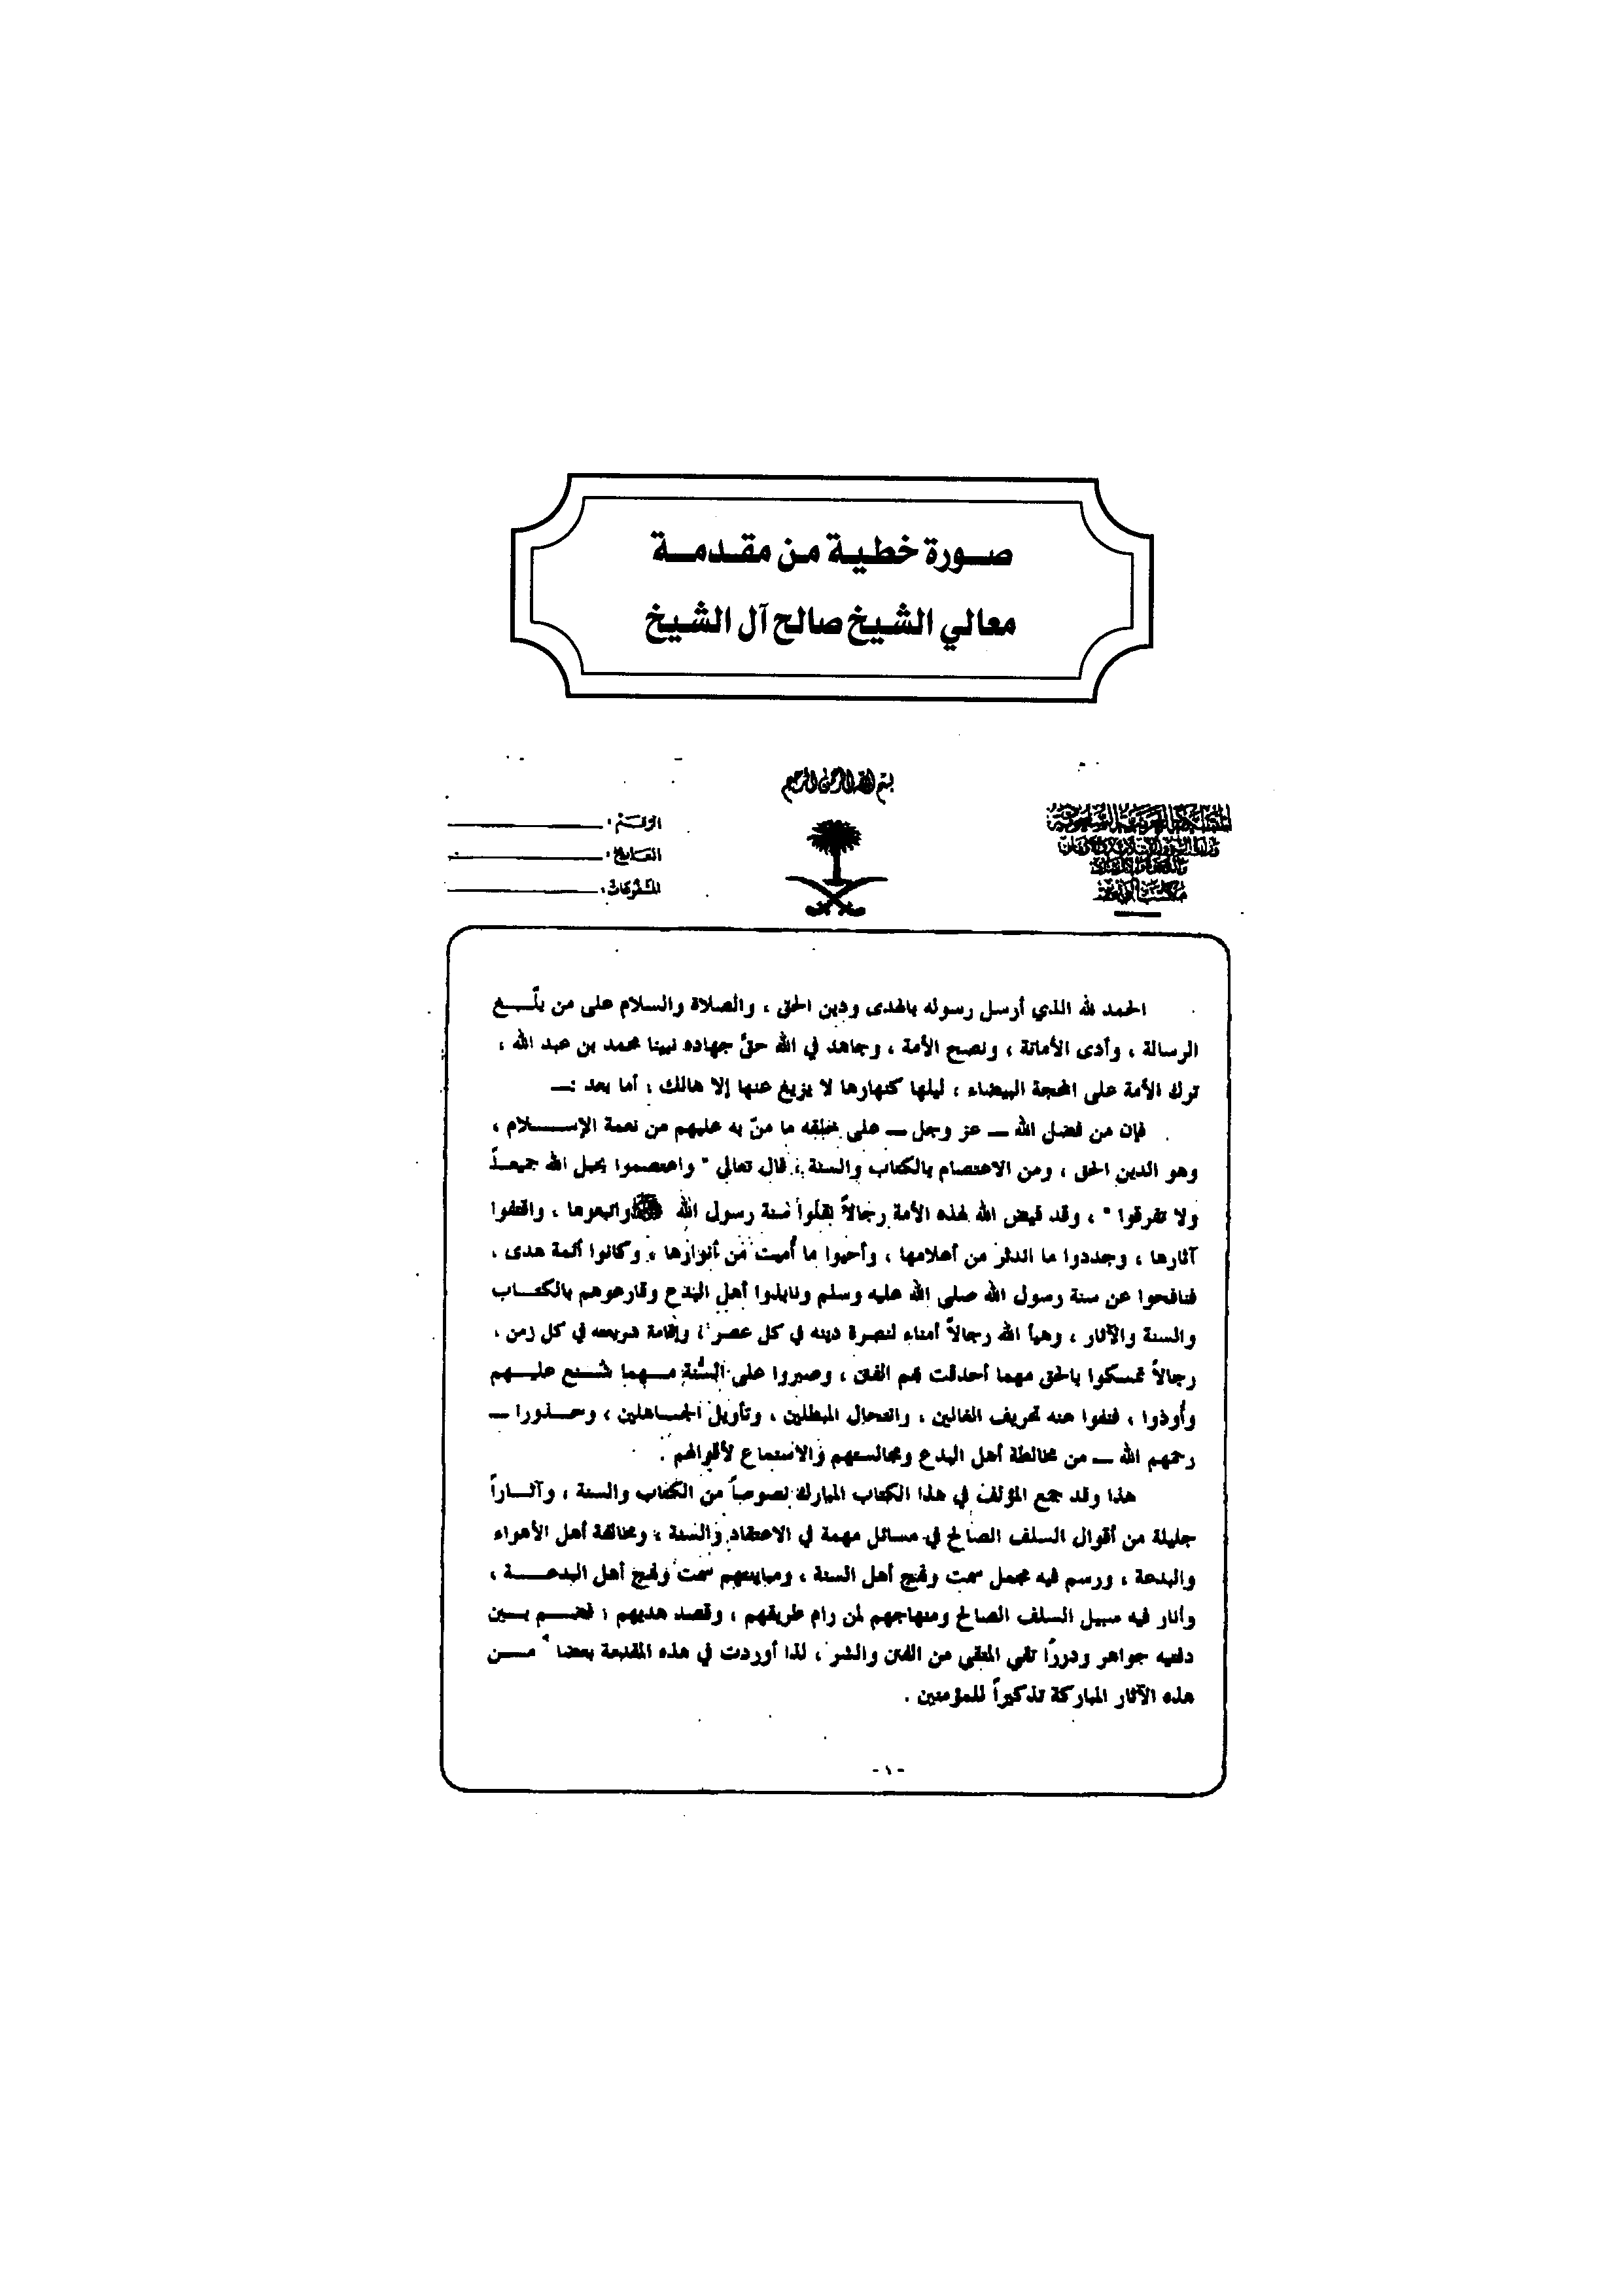 صورة خطية من مقدمة
معالي الشيخ صالح آل الشيخ
بسم الله الرحمن الرحيم
المملكة العربية السعودية
وزارة الشؤون الإسلامية والأوقاف
والدعوة والإرشاد
مكتب الوزير
الرقم :
التاريخ :
المشفوعات :
الحمد لله الذي أرسل رسوله بالهدى ودين الحق ، والصلاة والسلام على من بلّغ
الرسالة ، وأدى الأمانة ، ونصح الأمة ، وجاهد في الله حقَّ جهاده نبينا محمد بن عبد الله ،
ترك الأمة على المحجة البيضاء ، ليلها كنهارها لا يزيغ عنها إلا هالك ، أما بعد :ــ
فإن من فضل الله ــ عز وجل ــ على خلقه ما منّ به عليهم من نعمة الإسلام ،
وهو الدين الحق ، ومن الاعتصام بالكتاب والسنة ، قال تعالى " واعتصموا بحبل الله جميعاً
ولا تفرقوا " ، وقد قيض الله لهذه الأمة رجالاً نقلوا سنة رسول الله ﷺ واتبعوها ، واقتفوا
آثارها ، وجددوا ما اندثر من أعلامها ، وأحيوا ما أُميت من أنوارها ، وكانوا أئمة هدى ،
فنافحوا عن سنة رسول الله صلى الله عليه وسلم ونابذوا أهل البدع وقارعوهم بالكتاب
والسنة والآثار ، وهيأ الله رجالاً أمناء لنصرة دينه في كل عصر ، وإقامة شريعته في كل زمن ،
رجالاً تمسكوا بالحق مهما أحدقت بهم الفتن ، وصبروا على السُّنة مهما شُنع عليهم
وأُوذوا ، فنفوا عنه تحريف الغالين ، وانتحال المبطلين ، وتأويل الجاهلين ، وحذورا ــ
رحمهم الله ــ من مخالطة أهل البدع ومجالستهم والاستماع لأقوالهم .
هذا وقد جمع المؤلف في هذا الكتاب المبارك نصوصاً من الكتاب والسنة ، وآثاراً
جليلة من أقوال السلف الصالح في مسائل مهمة في الاعتقاد والسنة ، ومخالفة أهل الأهواء
والبدعة ، ورسم فيه مجمل سمت ونهج أهل السنة ، ومباينتهم سمت ونهج أهل البدعة ،
وأنار فيه سبيل السلف الصالح ومنهاجهم لمن رام طريقهم ، وقصد هديهم ؛ فضم بين
دفتيه جواهر ودررًا تقي المتقي من الفتن والشر ، لذا أوردت في هذه المقدمة بعضاً من
هذه الآثار المباركة تذكيراً للمؤمنين .
-١-